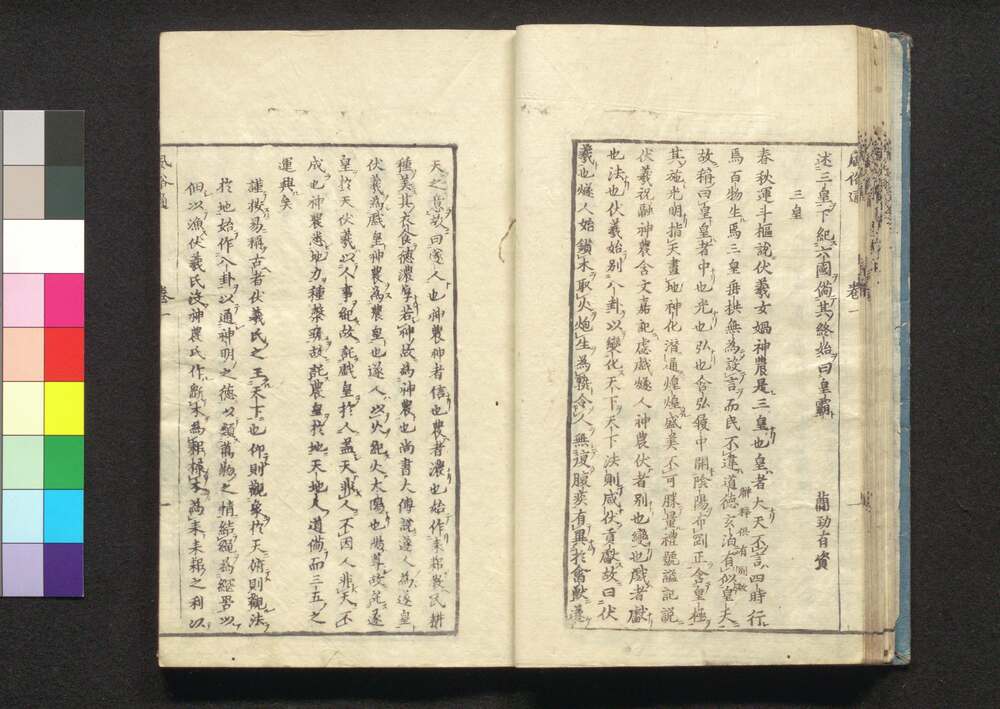 述三皇下紀六國備其終始曰皇霸
三皇
春秋運斗樞說伏羲女媧神農是三皇也皇者大天不言四時行
焉百物生焉三皇垂拱無為設言而民不違道德玄泊有似皇天
故稱曰皇皇者中也光也弘也含弘履中開陰陽布剛正含皇極
其施光明指天畫地神化潛通煌煌盛美不可勝量禮號謚記說
伏羲祝融神農含文嘉記虙戲燧人神農伏者別也變也戲者獻
也法也伏羲始別八卦以變化天下天下法則咸伏貢獻故曰伏
羲也燧人始鑽木取火炮生為熟令人無復腹疾有異於禽獸遂
天之意故曰遂人也神農神者信也農者濃也始作耒耜教民耕
種美其衣食德濃厚若神故為神農也尚書大傳說遂人為遂皇
伏羲為戲皇神農為農皇也遂人以火紀火太陽也陽尊故託遂
皇於天伏羲以人事紀故託戲皇於人蓋天非人不因人非天不
成也神農悉地力種榖疏故託農皇於地天地人道備而三五之
運興矣
謹按易稱古者伏羲氏之王天下也仰則觀象於天俯則觀法
於地始作八卦以通神明之德以類萬物之情結繩為網罟以
佃以漁伏羲氏沒神農氏作斲木為耜揉木為耒耒耜之利以
風俗通
卷一
一